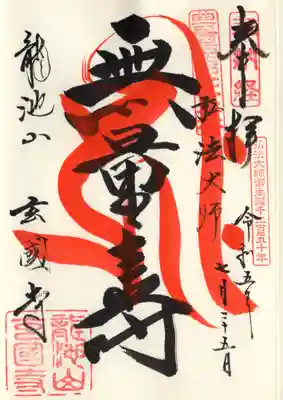 奉拝
弘法大師御生誕千二百五十年
令和五年
七月二十五日
弘法大師
無量壽
龍池山
玄國寺
龍池山
玄國寺